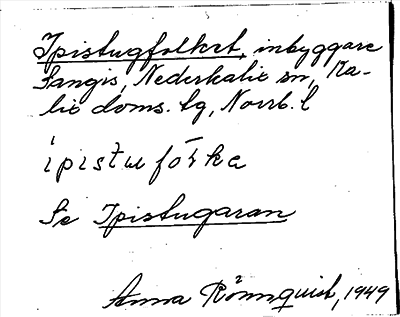 Ipistugfolket, inbyggare
Sangis, Nederkalix sn, Ka-
lix doms. lg, Norrb. l
Se Ipistugaran
Anna Rönnquist, 1949